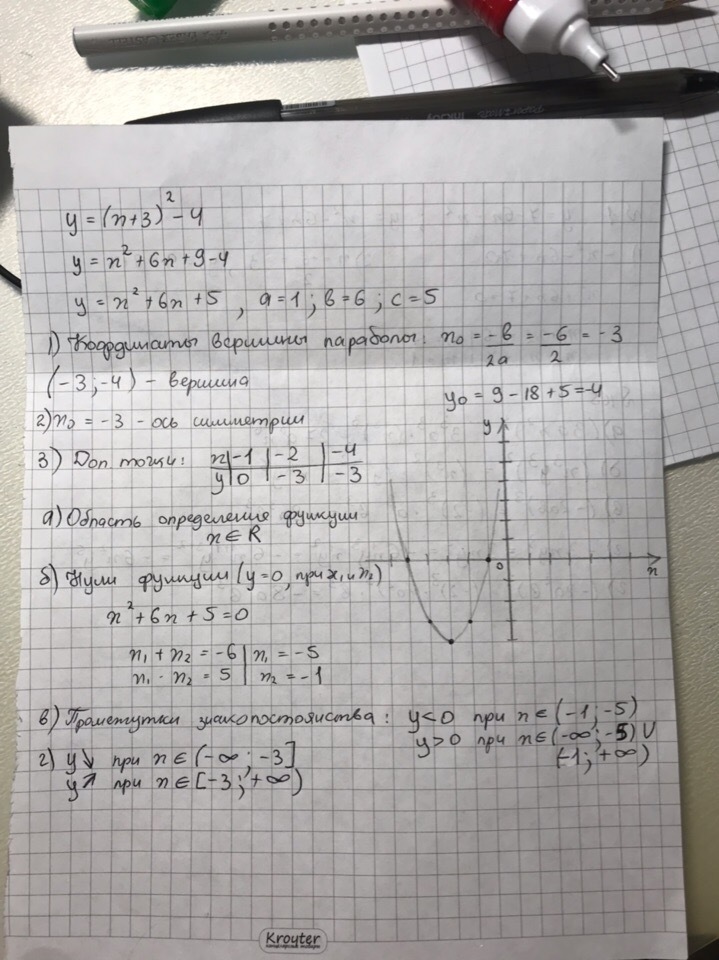 y = (x+3)² - 4
y = x² + 6x + 9 - 4
y = x² + 6x + 5 , a = 1 ; b = 6 ; c = 5
1) Координаты вершины параболы: x₀ = -b/2a = -6/2 = -3
(-3; -4) - вершина
y₀ = 9 - 18 + 5 = -4
2) x₀ = -3 - ось симметрии
3) Доп. точки: x | -1 | -2 | -4
y | 0 | -3 | -3
y
0
x
а) Область определения функции
x ∈ R
б) Нули функции (y = 0, при x₁ и x₂)
x² + 6x + 5 = 0
x₁ + x₂ = -6 | x₁ = -5
x₁ · x₂ = 5 | x₂ = -1
в) Промежутки знакопостоянства: y < 0 при x ∈ (-1; -5)
y > 0 при x ∈ (-∞; -5) ∪
(-1; +∞)
г) y↘ при x ∈ (-∞; -3]
y↗ при x ∈ [-3; +∞)
Kroyter